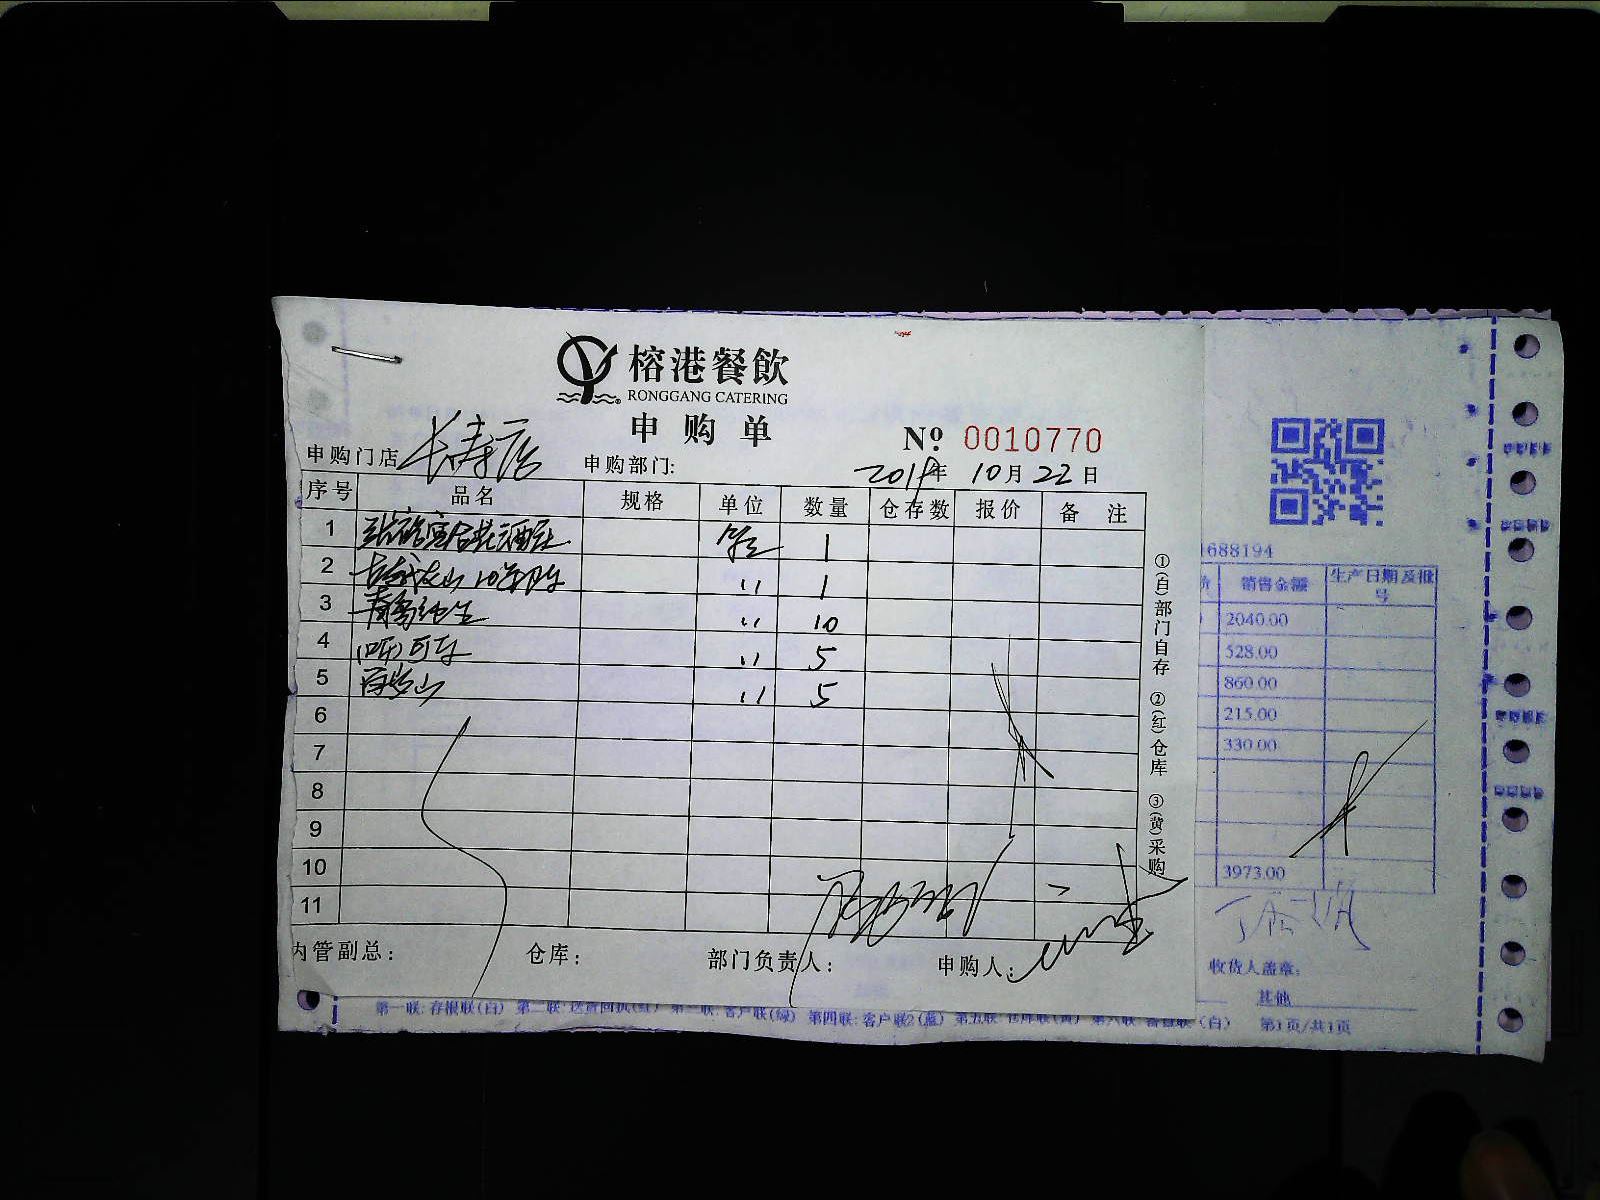 榕港餐飲
RONGGANG CATERING
申购单
№ 0010770
申购门店 长寿店 申购部门:
年 10月22日
序号 品名 规格 单位 数量 仓存数 报价 备注
1 1
2 〃 1
3 青岛纯生 〃 10
4 (听)可乐 〃 5
5 〃 5
6
7
8
9
10
11
内管副总: 仓库: 部门负责人: 申购人:
①(白)部门自存 ②(红)仓库 ③(黄)采购
1688194
销售金额 生产日期及批号
2040.00
528.00
860.00
215.00
330.00
3973.00
收货人盖章:
其他
第一联:存根联(白) 第二联:送货回执(红) 第三联:客户联(绿) 第四联:客户联2(蓝) 第五联:仓库联(黄) (白) 第1页/共1页